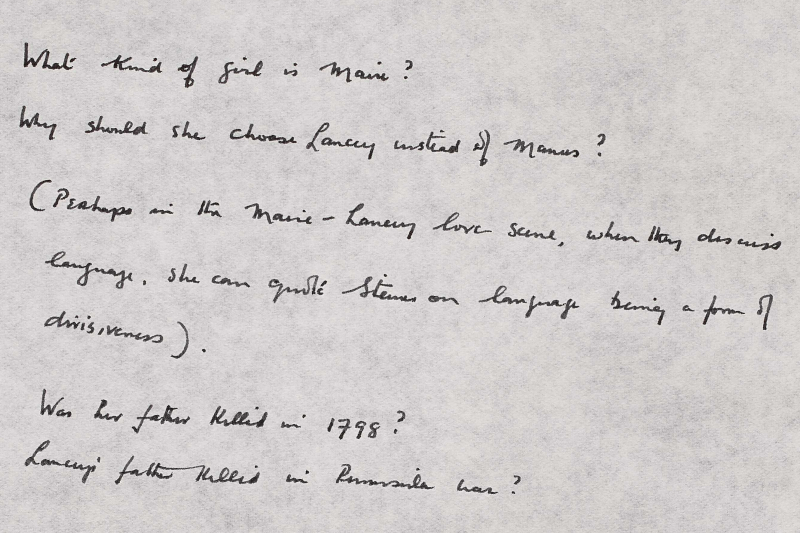 What kind of girl is Maire?
Why should she choose Lancey instead of Manus?
(Perhaps in the Maire - Lancey love scene, when they discuss
language, she can quote Steiner on language being a form of
divisiveness).
Was her father killed in 1798?
Lancey's father killed in Peninsula war?